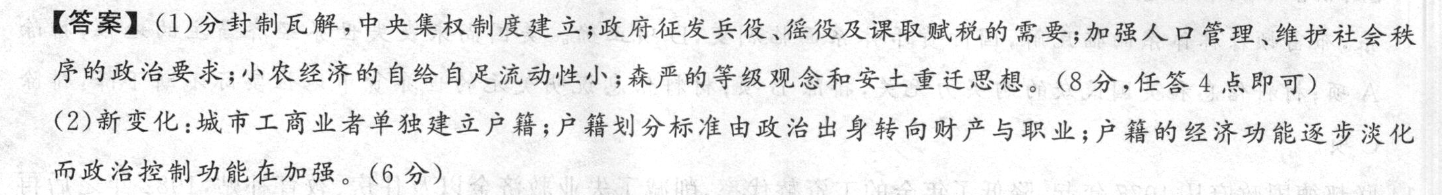 【答案】(1)分封制瓦解,中央集权制度建立;政府征发兵役、徭役及课取赋税的需要;加强人口管理、维护社会秩
序的政治要求;小农经济的自给自足流动性小;森严的等级观念和安土重迁思想。(8分,任答4点即可)
(2)新变化:城市工商业者单独建立户籍;户籍划分标准由政治出身转向财产与职业;户籍的经济功能逐步淡化
而政治控制功能在加强。(6分)